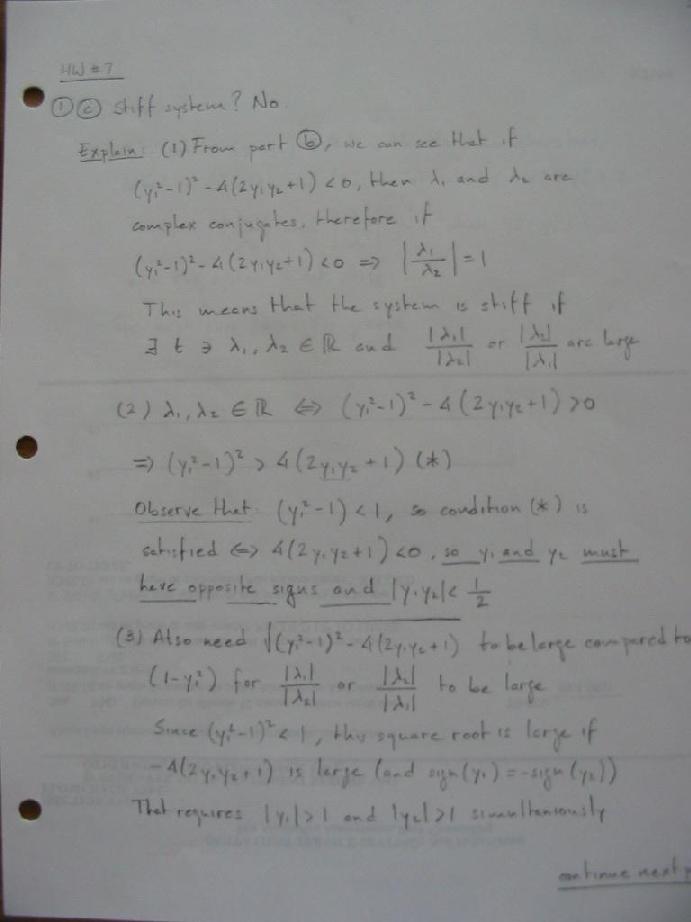 HW #7
① ⓒ Stiff system? No.
Explain: (1) From part ⓑ, we can see that if
(y₁²-1)² - 4(2y₁y₂+1) < 0, then λ₁ and λ₂ are
complex conjugates, therefore if
(y₁²-1)² - 4(2y₁y₂+1) < 0 ⇒ |λ₁/λ₂| = 1
This means that the system is stiff if
∃ t ∋ λ₁, λ₂ ∈ ℝ and |λ₁|/|λ₂| or |λ₂|/|λ₁| are large
(2) λ₁, λ₂ ∈ ℝ ⇔ (y₁²-1)² - 4(2y₁y₂+1) > 0
⇒ (y₁²-1)² > 4(2y₁y₂+1) (*)
Observe that: (y₁²-1) < 1, so condition (*) is
satisfied ⇔ 4(2y₁y₂+1) < 0, so y₁ and y₂ must
have opposite signs and |y₁y₂| < 1/2
(3) Also need √((y₁²-1)² - 4(2y₁y₂+1)) to be large compared to
(1-y₁²) for |λ₁|/|λ₂| or |λ₂|/|λ₁| to be large
Since (y₁²-1)² < 1, this square root is large if
-4(2y₁y₂+1) is large (and sign(y₁) = -sign(y₂))
That requires |y₁| > 1 and |y₂| > 1 simultaneously
continue next